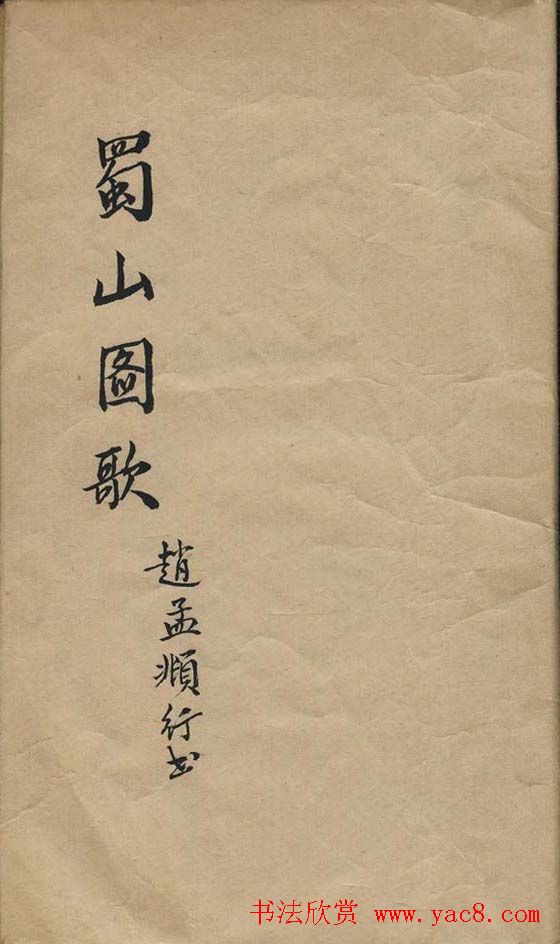 蜀山圖歌
趙孟頫行书
书法欣赏 www.yac8.com